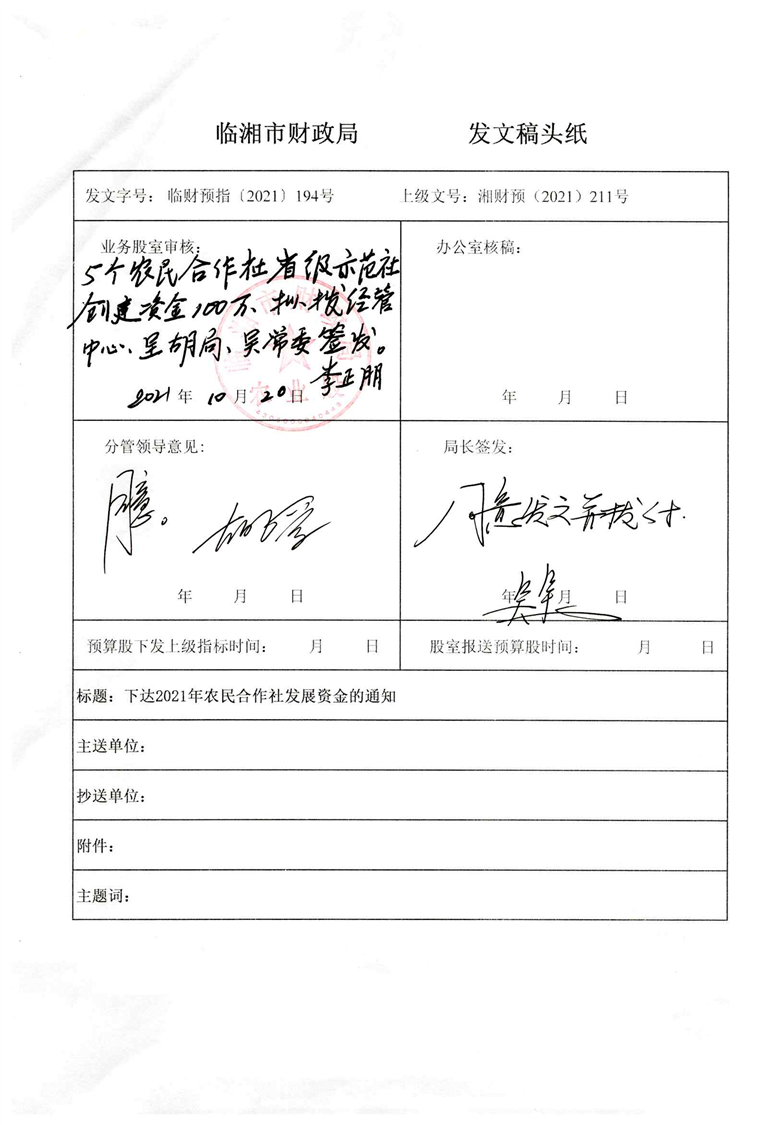 临湘市财政局 发文稿头纸
发文字号： 临财预指〔2021〕194号 上级文号：湘财预（2021）211号
业务股室审核：
5个农民合作社省级示范社
创建资金100万、拟拨经管
中心、呈胡局、吴常委签发。
李正朋
2021年10月20日
办公室核稿：
年 月 日
分管领导意见：
同意。
年 月 日
局长签发：
同意发文并拨付.
年 月 日
预算股下发上级指标时间： 月 日
股室报送预算股时间： 月 日
标题：下达2021年农民合作社发展资金的通知
主送单位：
抄送单位：
附件：
主题词：